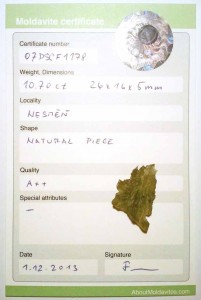 Moldavite certificate
Certificate number
07DSCF1178
Weight, Dimensions
10.70 ct 24x16x5mm
Locality
NESMĚŇ
Shape
NATURAL PIECE
Quality
A++
Special attributes
–
Date
Signature
1.12.2013
AboutMoldavites.com